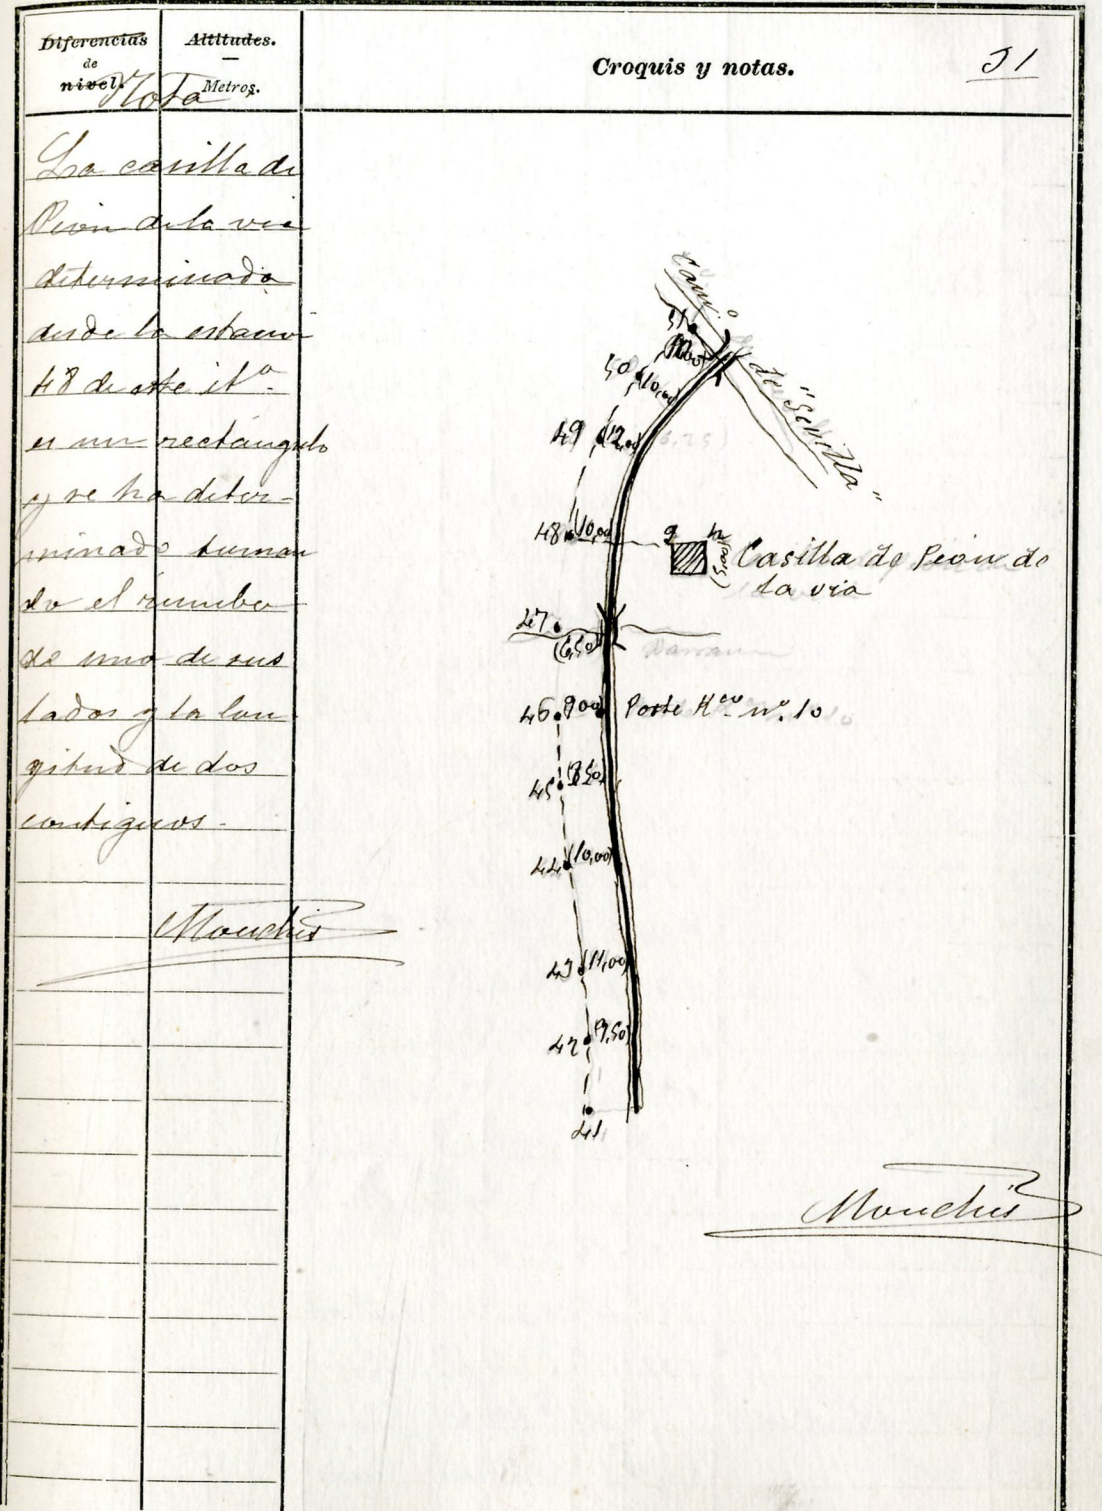 Diferencias
de
nivel.
Altitudes.
Metros.
Croquis y notas.
Nota
La casilla de
Peon de la via
determinada
desde la estación
48 de este itº
es un rectángulo
y se ha deter-
minado toman
do el rumbo
de uno de sus
lados y la lon
gitud de dos
contiguos.
Monchis
Camº de "Sevilla"
51
50
(10,00)
49 (12,00)
48 (10,00)
Casilla de Peon de
la via
47
(6,50)
46 9,00) Poste Kco nº 10
45 (8,50)
44 (10,00)
43 (11,00)
42 (9,50)
41
Monchis